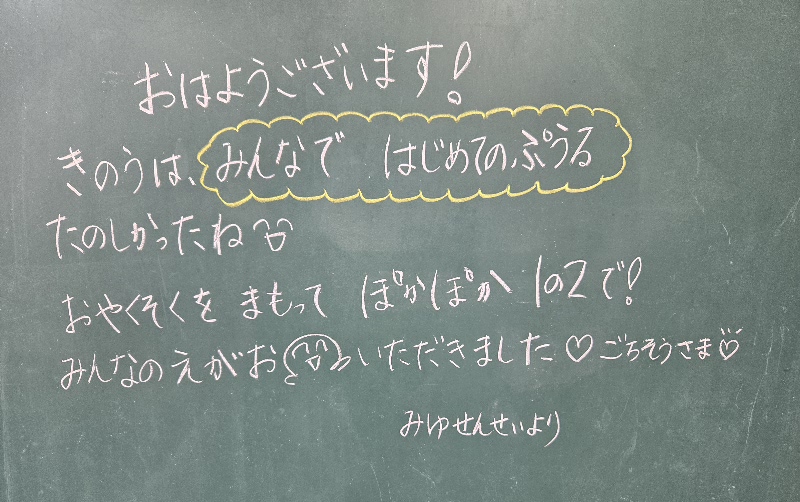 おはようございます!
きのうは、みんなで はじめての、ぷうる
たのしかったね
おやくそくを まもって ぽかぽか 1の2で!
みんなのえがおいただきました♡ごちそうさま♡
みゆせんせいより